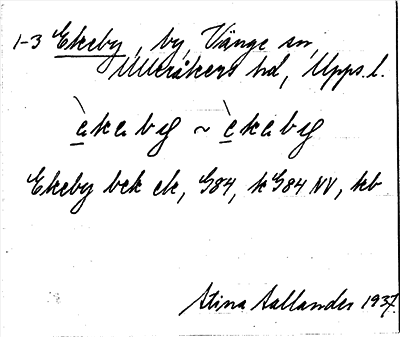 1-3 Ekeby, by, Vänge sn,
Ulleråkers hd, Upps. l.
èkeby ~ èkeby
Ekeby bek ek, G84, k G84 NV, kb
Stina Sallander 1937.